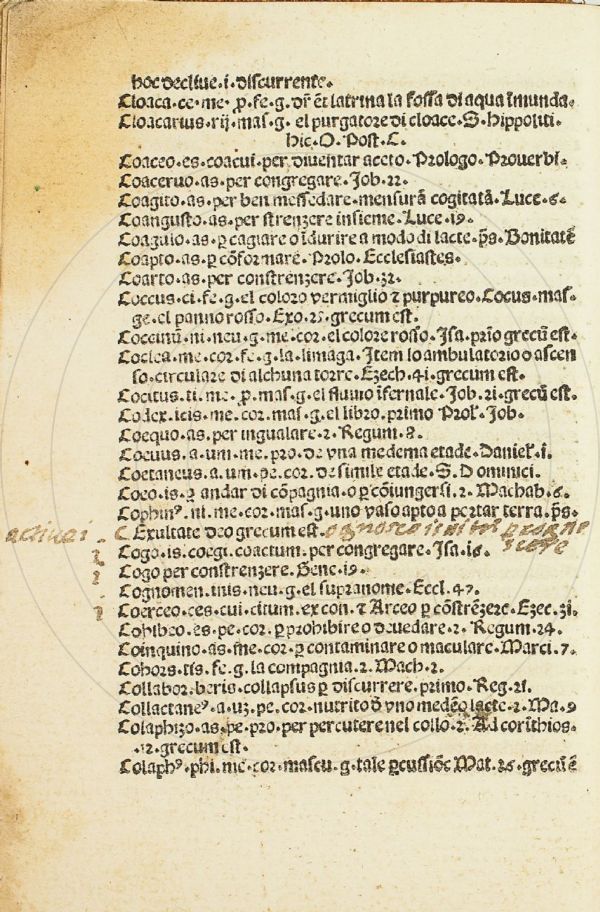 hoc decliue.i.discurrente.
Cloaca.ce.me.p̱.fe.g.dr̄ ēt latrina la fossa di aqua īmunda.
Cloacarius.rij.mas.g. el purgatore di cloace.S.hippoliti.
hic.O.Post.C.
Coaceo.es.coacui.per diuentar aceto.Prologo.Prouerbi.
Coaceruo.as.per congregare.Job.22.
Coagito.as.per ben messedare.mensurā cogitatā.Luce.6.
Coangusto.as.per strenzere insieme.Luce.19.
Coagulo.as.ꝑ cagiare o īdurire a modo di lacte.p̄s.Bonitatē
Coapto.as.ꝑ cōformare.Prolo.Ecclesiastes.
Coarto.as.per constrenzere.Job.32.
Coccus.ci.fe.g.el coloro vermiglio ⁊ purpureo.Cocus.mas.
ge.el panno rosso.Exo.25.grecum est.
Coccinū.ni.neu.g.me.cor.el colore rosso.Isa.prīo grecū est.
Coclea.me.cor.fe.g.la.limaga.Item lo ambulatorio o ascen
so.circulare di alchuna torre.Ezech.41.grecum est.
Cocitus.ti.me.p̱.mas.g.el fluuio īfernale.Job.21.grecū est.
Codex.icis.me.cor.mas.g.el libro.primo Prol'.Job.
Coequo.as.per ingualare.2.Regum.8.
Coeuus.a.um.me.pro.de vna medema etade.Daniel'.i.
Coetaneus.a.um.pe.cor.de simile etade.S.Dominici.
Coeo.is.ꝑ andar di cōpagnia.o ꝑ cōiungersi.2.Machab.6.
Cophinꝰ.ni.me.cor.mas.g.uno vaso apto a portar terra.p̄s.
C Exultate deo grecum est.
Cogo.is.coegi.coactum.per congregare.Isa.16.
Cogo per constrenzere.Gene.19.
Cognomen.inis.neu.g.el supranome.Eccl.47.
Coerceo.ces.cui.citum.ex con.⁊ Arceo ꝑ cōstrēzere.Ezec.31.
Cohibeo.es.pe.cor.ꝑ prohibire o deuedare.2.Regum.24.
Coinquino.as.me.cor.ꝑ contaminare o maculare.Marci.7.
Cohors.tis.fe.g.la compagnia.2.Mach.2.
Collabor.beris.collapsus ꝑ discurrere.primo.Reg.21.
Collactaneꝰ.a.uȝ.pe.cor.nutrito d̄ vno medēo lacte.2.Ma.9
Colaphizo.as.pe.pro.per percutere nel collo.2.Ad corīthios.
.12.grecum est.
Colaphꝰ.phi.me.cor.mascu.g.tale ꝑcussiōe Mat.26.grecū ē